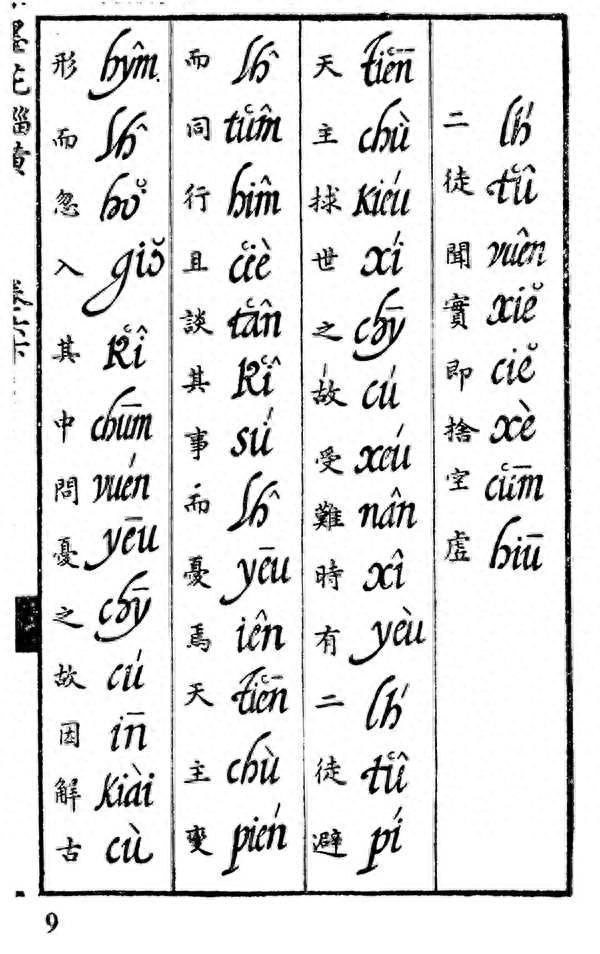 二徒聞實即捨空虛
lh́ tʿû vuên xiĕ ciĕ xè cʿūm hiū
天主捄世之故受難時有二徒避
tʿiēn chù kiéu xí chȳ cú xeú nân xî yèu lh́ tʿû pí
而同行且談其事而憂焉天主變
lĥ tʿûm hîm cʿiè tʿân kʿî sú lĥ yēu iên tʿiēn chù pién
形而忽入其中問憂之故因解古
hŷm lĥ hŏ giŏ kʿî chūm vuén yēu chȳ cú īn kiài cù
9